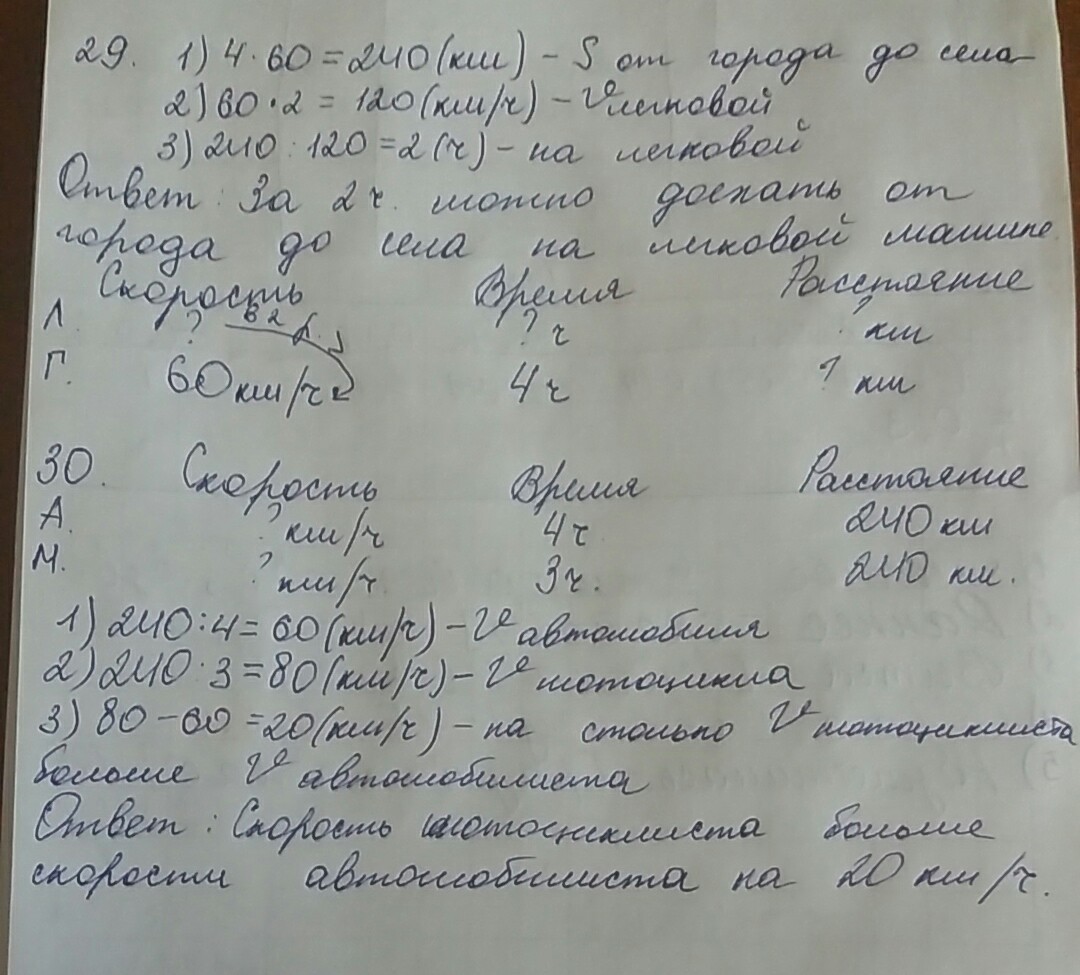 29. 1) 4·60=240(км) – S от города до села
2) 60·2 = 120(км/ч) – V легковой
3) 240:120=2(ч) – на легковой
Ответ: За 2ч. можно доехать от
города до села на легковой машине.
Скорость Время Расстояние
Л. ? в 2 р. ? ч ? км
Г. 60км/ч 4ч ? км
30. Скорость Время Расстояние
А. ? км/ч 4ч 240км
М. ? км/ч 3ч. 240 км.
1) 240:4= 60(км/ч) – V автомобиля
2) 240:3=80(км/ч) – V мотоцикла
3) 80–60=20(км/ч) – на столько V мотоциклиста
больше V автомобилиста
Ответ: Скорость мотоциклиста больше
скорости автомобилиста на 20 км/ч.